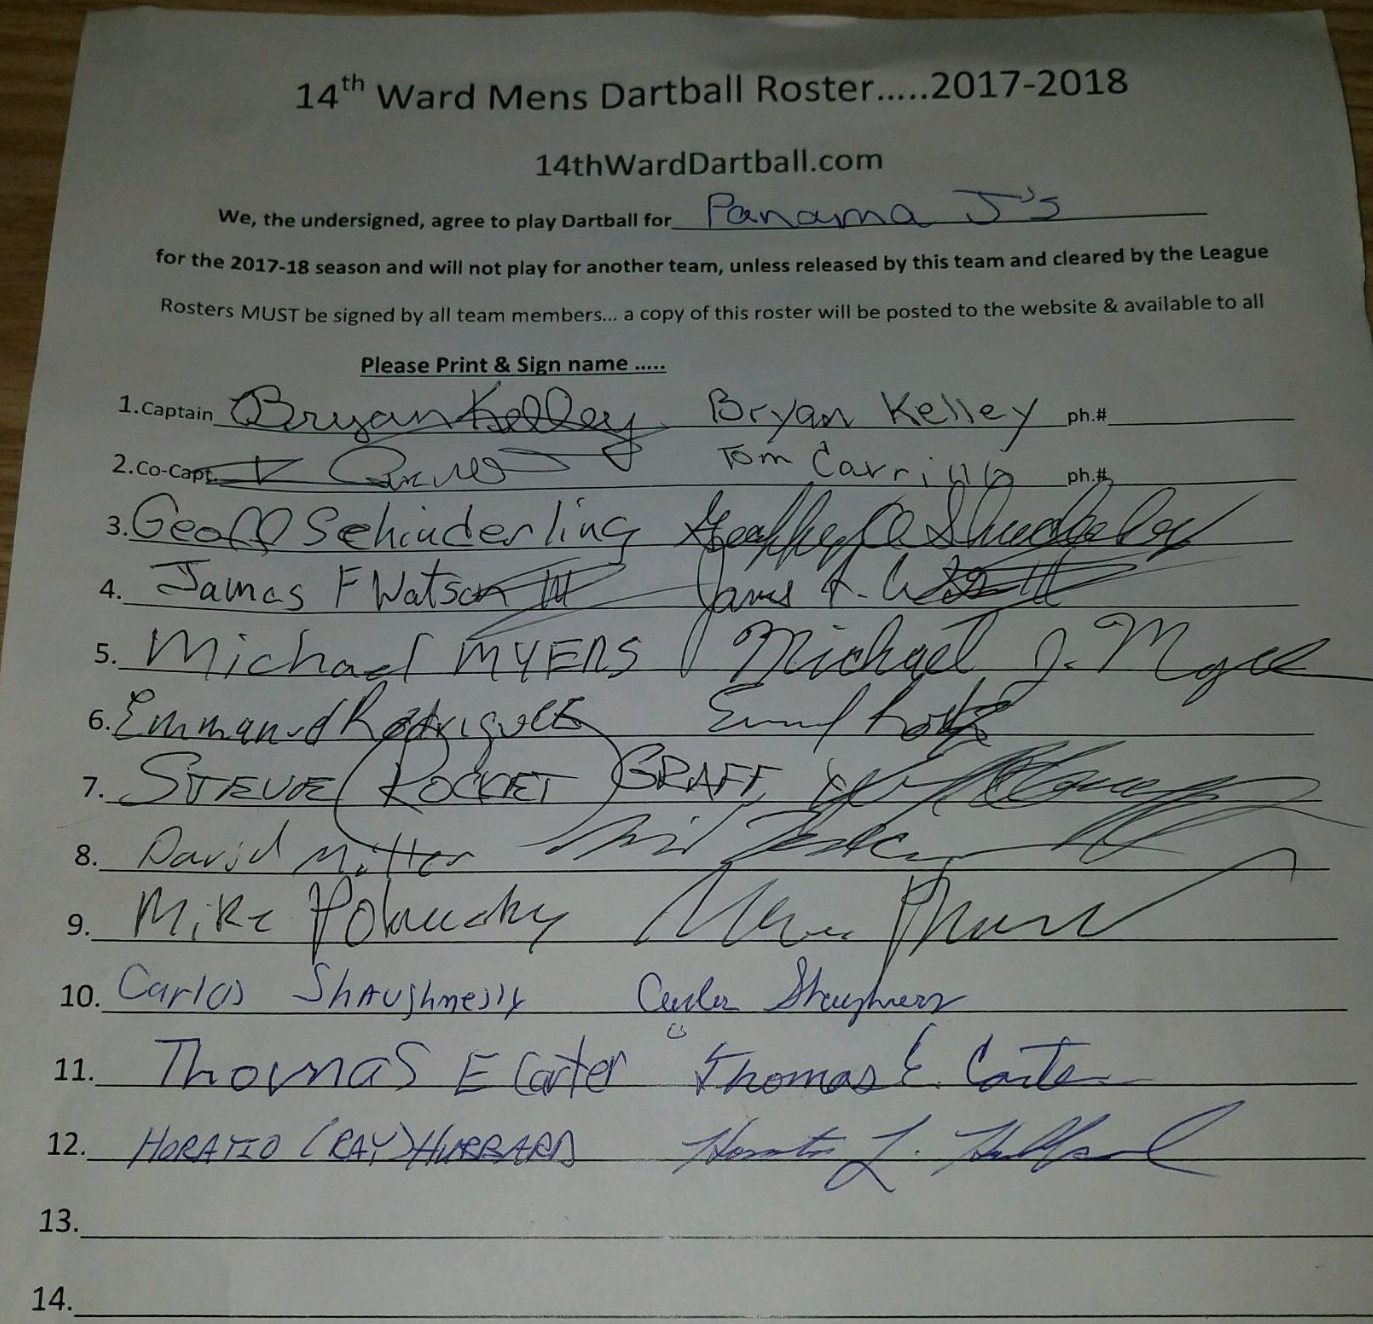 14th Ward Mens Dartball Roster.....2017-2018
14thWardDartball.com
We, the undersigned, agree to play Dartball for Panama J's
for the 2017-18 season and will not play for another team, unless released by this team and cleared by the League
Rosters MUST be signed by all team members... a copy of this roster will be posted to the website & available to all
Please Print & Sign name .....
1.Captain Bryan Kelley Bryan Kelley ph.#
2.Co-Capt. Tom Carrillo ph.#
3. Geoff Schinderling
4. James F Watson III James F.
5. Michael MYERS Michael J. Myers
6. Emmanuel Rodriguez
7. STEVE (ROCKET) GRAFF
8. David
9. Mike
10. Carlos Shaughnessy Carlos Shaughnessy
11. Thomas E Carter Thomas E. Carter
12. HORATIO (RAY) HUBBARD Horatio L. Hubbard
13.
14.